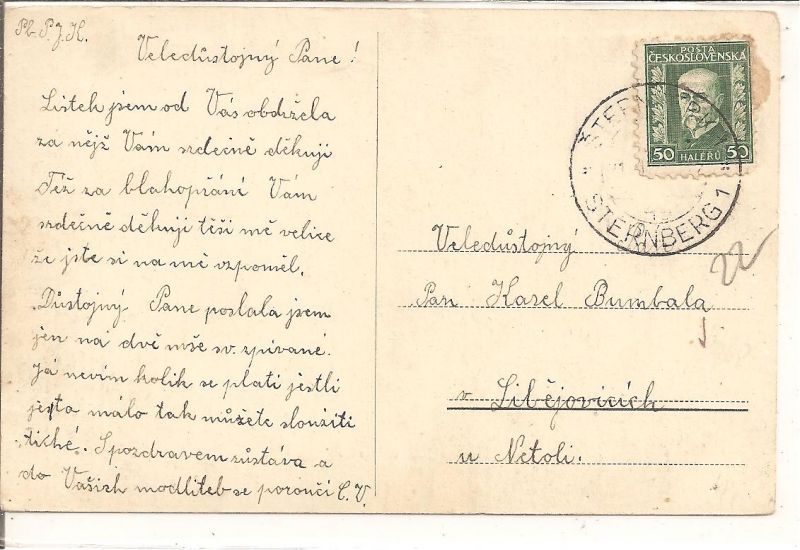 Pb. P. J. K.
Veledůstojný Pane!
Lístek jsem od Vás obdržela
za nějž Vám srdečně děkuji
Též za blahopřání Vám
srdečně děkuji těší mě velice
že jste si na mě vzpoměl.
Důstojný Pane poslala jsem
jen na dvě mše sv. zpívané.
Já nevím kolik se platí jestli
jesta málo tak můžete sloužiti
tiché. S pozdravem zůstáva a
do Vašich modliteb se poroučí C. V.
POŠTA
ČESKOSLOVENSKÁ
50 HALÉŘŮ 50
STERNBERG 1
Veledůstojný
Pan Karel Bumbala
v Libějovicích
u Netoli.
22